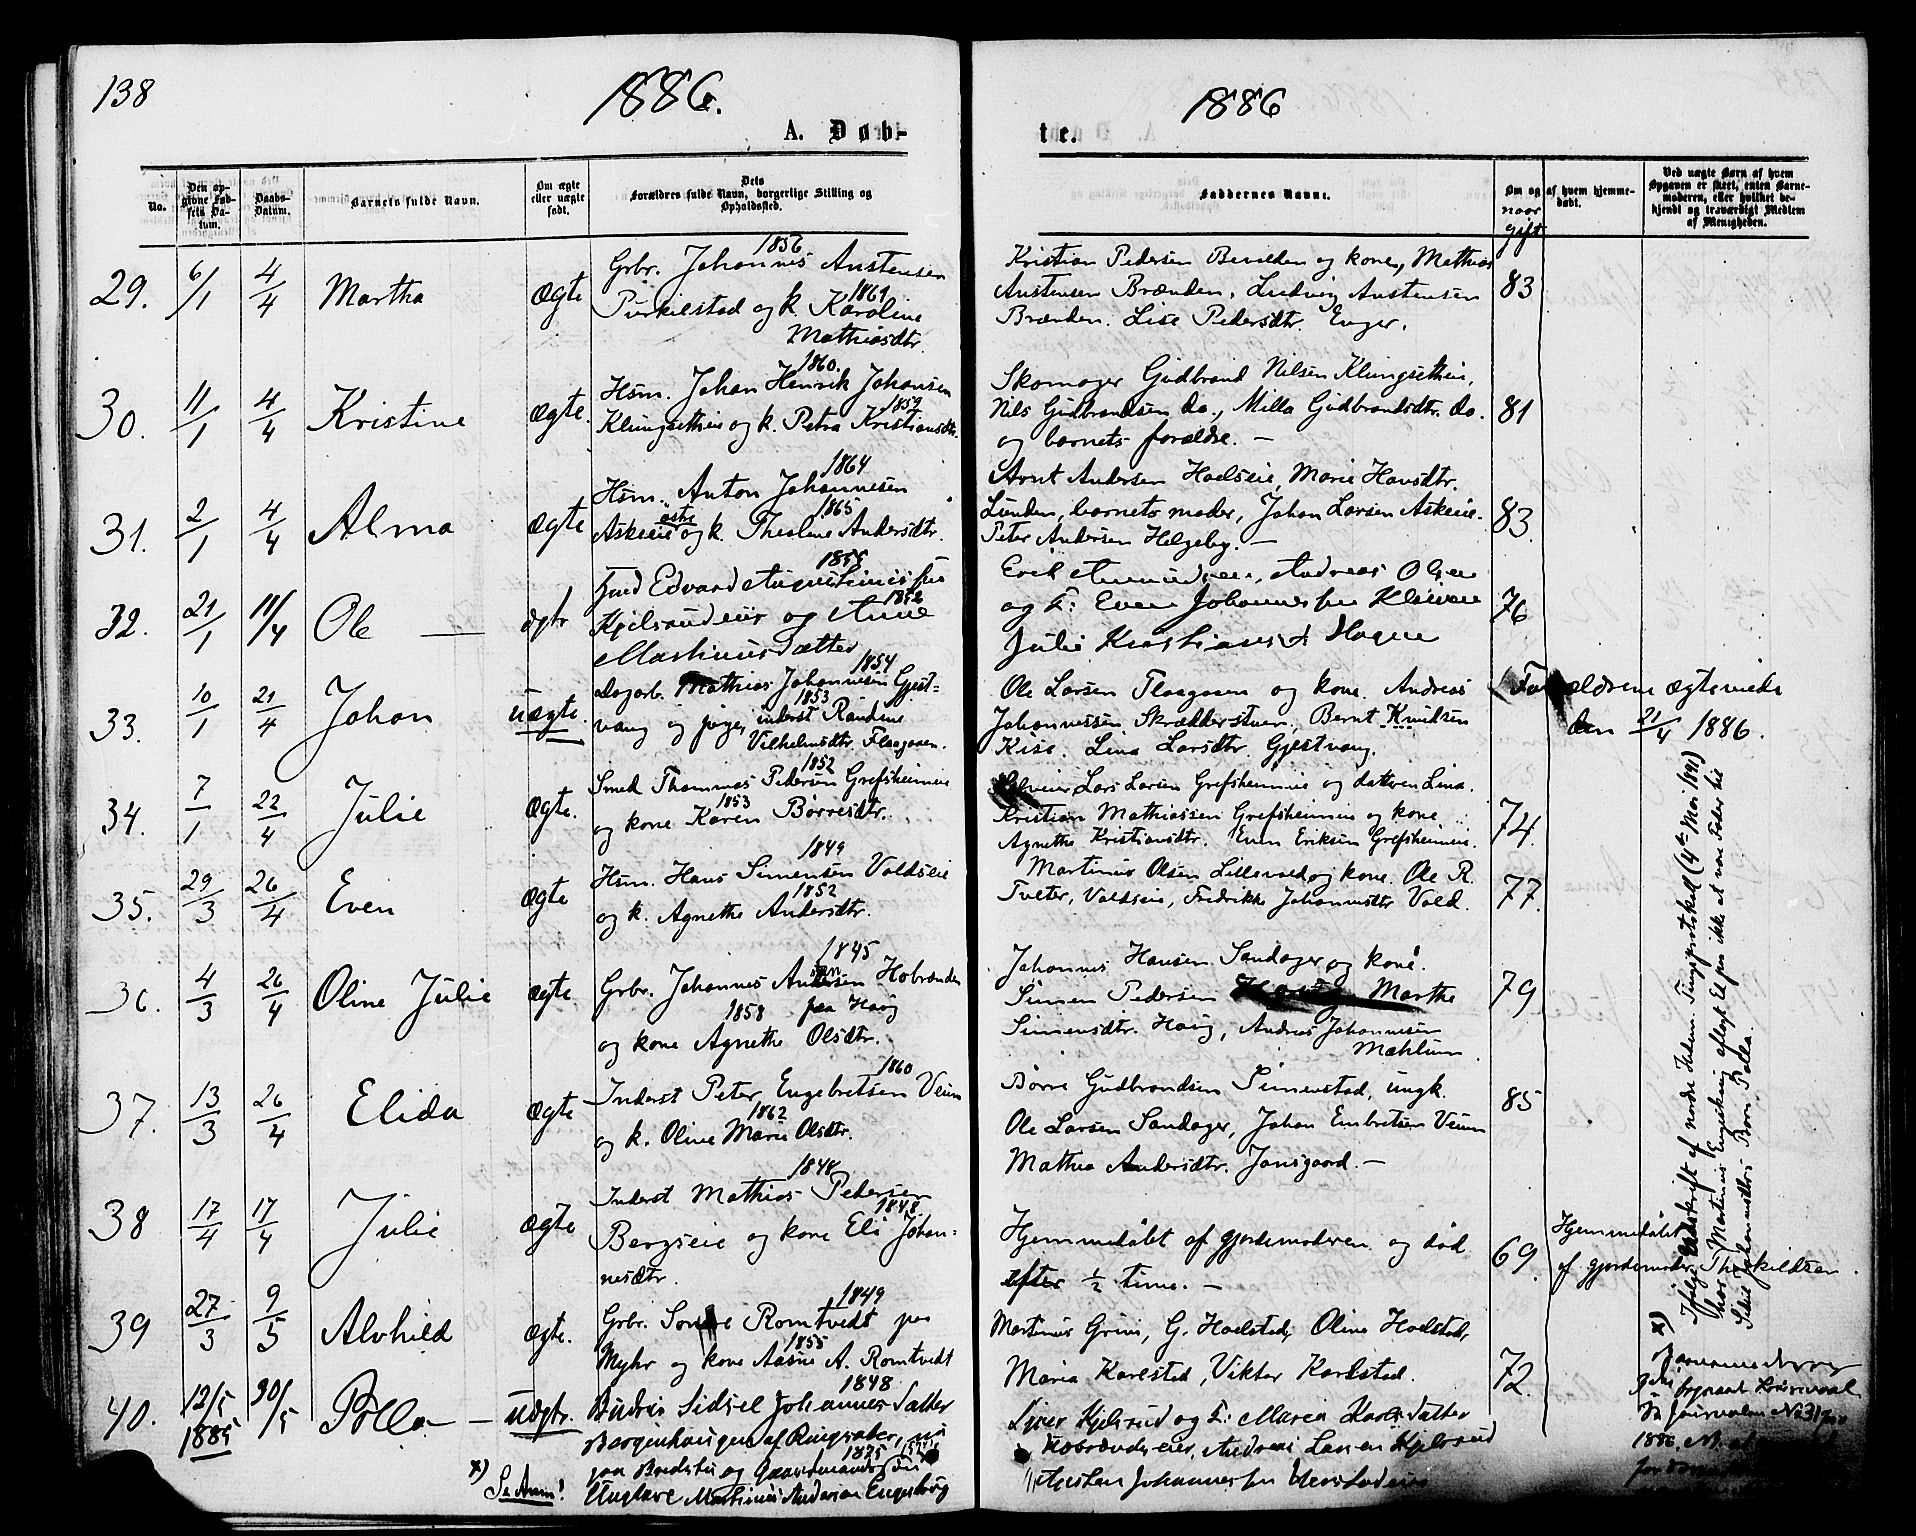 138
1886.
A. Døb-
No.
Den op-
givne Fød-
sels Da-
tum.
Daabs-
Datum.
Barnets fulde Navn.
Om ægte
eller uægte
født.
Dets
Forældres fulde Navn, borgerlige Stilling og
Opholdssted.
29.
6/1
4/4
Martha
Ægte
1856
Grbr. Johannes Austensen
1861
Purkestad og k. Karoline
Mathiasdtr.
30.
11/1
4/4
Kristine
Ægte.
1860.
Hsm. Johan Henrik Johansen
1859
Klungsetheie og k. Petra Kristiansdtr.
31.
2/1
4/4
Alma
Ægte
1864
Hsm. Anton Johannesen
1865
Askeeie østre og k. Theoline Andersdtr.
32.
21/1
11/4
Ole
ægte
1855
Edvard Augustinussen
1852
Kjelsrudeier og Anne
Martinusdatter
33.
10/1
21/4
Johan
uægte.
1854
Dagarb. Mathias Johannesen Gjest-
1853
vang og pige, inderst Randine
Vilhelmsdtr. Flaagasen.
34.
7/1
22/4
Julie
Ægte.
1852
Smed Thommas Pedersen Grefsheimeie
1853
og kone Karen Børresdtr.
35.
29/3
26/4
Even
Ægte
1849
Hsm. Hans Simensen Valdseie
1852
og k. Agnethe Andersdtr.
36.
4/3
26/4
Oline Julie
Ægte
1845
Grbr. Johannes Andersen Hobrænden
1858 paa Haug
og kone Agnethe Olsdtr.
37.
13/3
26/4
Elida
Ægte
1860
Inderst Peter Engebretsen Veum
1862
og k. Oline Marie Olsdtr.
38
17/4
17/4
Julie
Ægte
1848
Inderst Mathias Pedersen
1848
Bergseie og kone Eli Johan-
nesdtr.
39
27/3
9/5
Alvhild
Ægte.
1849
Grbr. Sondre Romtvedt paa
1855
Myhr og kone Aasne A. Romtvedt
40.
12/5
1885
30/5
Polla
uægte.
1848
Sidsel Johannesdatter
Bergenhaugen af Ringsaker, nu
1825
paa Bredstu og Gaardmandssøn
x) Se Anm!
Ungkarl Martinus Andersen Engeskoug
1886
te.
Faddernes Navne.
Om og af hvem hjemme-
døbt.
naar
gift
Ved uægte Børn af hvem
Opgaven er skeet, enten Barne-
moderen, eller hvilket be-
kjendt og troværdigt Medlem
af Menigheden.
Kristian Pedersen Bevelden og kone, Mathias
Austensen Brænden, Ludvig Austensen
Brænden. Lise Pedersdtr. Enger.
83
Skomager Gudbrand Nilsen Klungsetheie,
Nils Gudbrandsen do., Milla Gudbrandsdtr. do.
og barnets forældre. —
81
Arnt Andersen Hoelseie, Marie Hansdtr.
Lunden, barnets moder, Johan Larsen Askeeie.
Peter Andersen Helgeby. —
83.
Erik Amundsen, Andreas Olsen
og k: Even Johannessen Kleven
Julie Kristiansd. Hagen
76
Ole Larsen Flaagasen og kone. Andreas
Johannessen Skrædderstuen, Bernt Knudsen
Kise. Lina Larsdtr. Gjestvang.
Forældrene ægteviede
den 21/4 1886.
Lars Larsen Grefsheimeie og datteren Lina.
Kristian Mathiassen Grefsheimeie og kone
Agnethe Kristiansdtr. Even Eriksen Grefsheimeie.
74.
Martinus Olsen Lillevold og kone. Ole R.
Tveter, Valdseie, Fredrikke Johannesdtr. Vold.
77.
Johannes Hansen Sandager og kone.
Simen Pedersen Marthe
Simensdtr. Haug, Andreas Johannesen
Mæhlum.
79
Børre Gudbrandsen Simenstad, ungk.
Ole Larsen Sandager, Johan Embretsen Veum
Mathea Andersdtr. Jønsgaard. —
85
Hjemmedøbt af gjordemoderen og død
efter ½ time. —
69.
Hjemmedøbt
af gjordemoder Therkildsen.
Martinus Grini, G. Hoelstad, Oline Hoelstad,
Maria Karlstad, Viktor Karlstad.
72.
Kjelsrud og k: Maren Karlsdatter
Hobrændeeier, Andreas Larsen Kjelsrud
Johannessen
x) Ifølge Udskrift af nordre Hedem. Tingsprotokol (4de Mai 1891)
har Martinus Engeskoug aflagt Ed paa ikke at være Fader til
Sidsel Johannesdtrs Barn Polla.
Journalen No 317
1886.